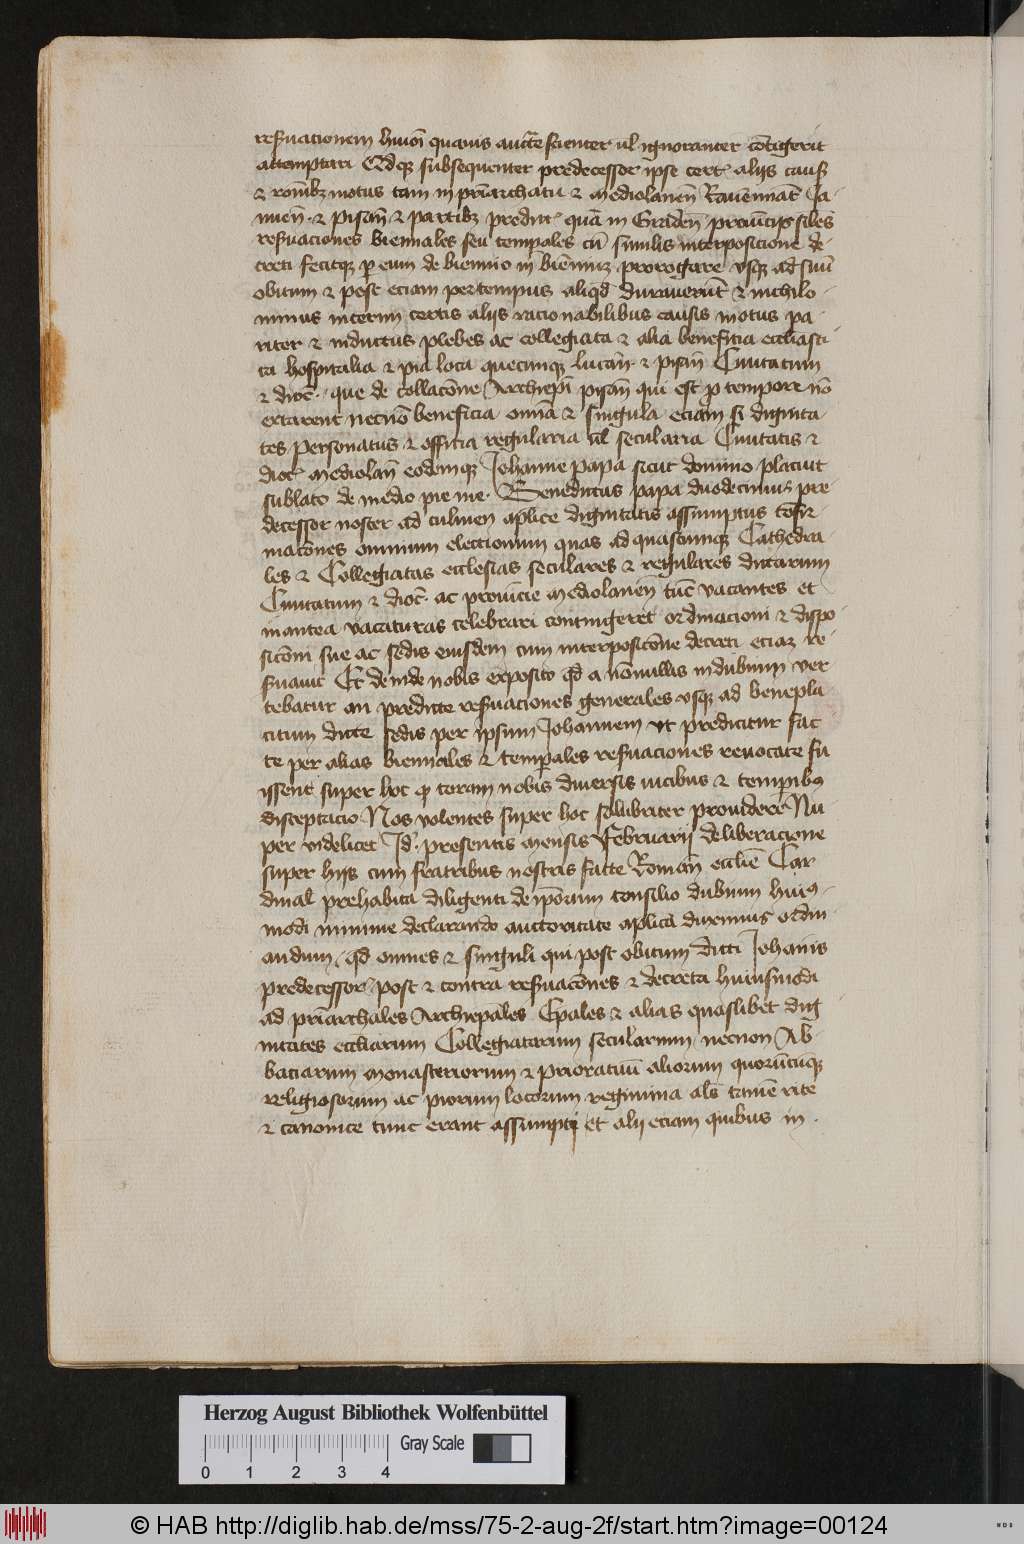 resuacionem huiõi quauis aucte scienter ul ignoranter cõtigerit
attemptari Idq subsequenter predecessor ipse cert aliis caus
& romibz motus tam in priarchatu & mediolanen Rauennat Ja
nuen & pisan & partibz predict quã in Graden prouincijs siles
resuaciones biennales seu tempales cũ similis interposicione de
creti fecitqz p eum de biennio in biennuz prorogare vsqz ad suũ
obitum & post eciam per tempus aliqd durauerũt & nichilo
minus interim certis aliis racionabilibus causis motus pa
riter & inductus plebes ac collegiata & alia beneficia ecclasti
ca hospitalia & pia loca quecumqz lucan & pisan Ciuitatum
& dioc que de collacõne Archiepi pisan qui est p tempore nõ
extarent necnõ beneficia omia & singula eciam si dignita
tes personatus & officia regularia ul secularia Ciuitatis &
dioc mediolan eodemqz Johanne papa sicut domino placuit
sublato de medio pie me Benedictus papa duodecimus pre
decessor noster ad culmen aplice dignitatis assumptus cõfir
macões omnium electionum quas ad quascumqz Cathedra
les & Collegiatas ecclesias seculares & regulares dictarum
Ciuitatum & dioc ac prouincie mediolanen tũc vacantes et
inantea vacaturas celebrari contingeret ordinacioni & dispo
sicõni sue ac sedis eiusdem cum interposicõne decreti eciaz re
suauit Et deinde nobis exposito qd a nõnullis in dubium ver
tebatur an predicte resuaciones generales vsqz ad benepla
citum dicte sedis per ipsum Johannem ut predicitur fac
te per alias biennales & tempales resuaciones reuocate fu
issent super hoc q coram nobis diuersis uicibus & tempibus
disceptacio Nos volentes super hoc salubriter prouidere Nu
per videlicet Id presentis mensis Februarij deliberacione
super hijs cum fratribus nostris sacte Roman ecclie Car
dinal prehabita diligenti de ipõrum consilio dubium huius
modi minime declarando auctoritate aplica duximus ordin
andum qd omnes & singuli qui post obitum dicti Johanis
predecessor post & contra resuacõnes & decreta huiusmodi
ad priarchales Archiepales Epales & alias quaslibet dig
nitates eccliarum Collegiatarum secularium necnon Ab
baciarum monasteriorum & prioratuũ aliorum quorũcũqz
religiosorum ac piorum locorum regimina als tamẽ rite
& canonice tunc erant assumpti et alij eciam quibus in
Herzog August Bibliothek Wolfenbüttel
Gray Scale
0 1 2 3 4
© HAB http://diglib.hab.de/mss/75-2-aug-2f/start.htm?image=00124